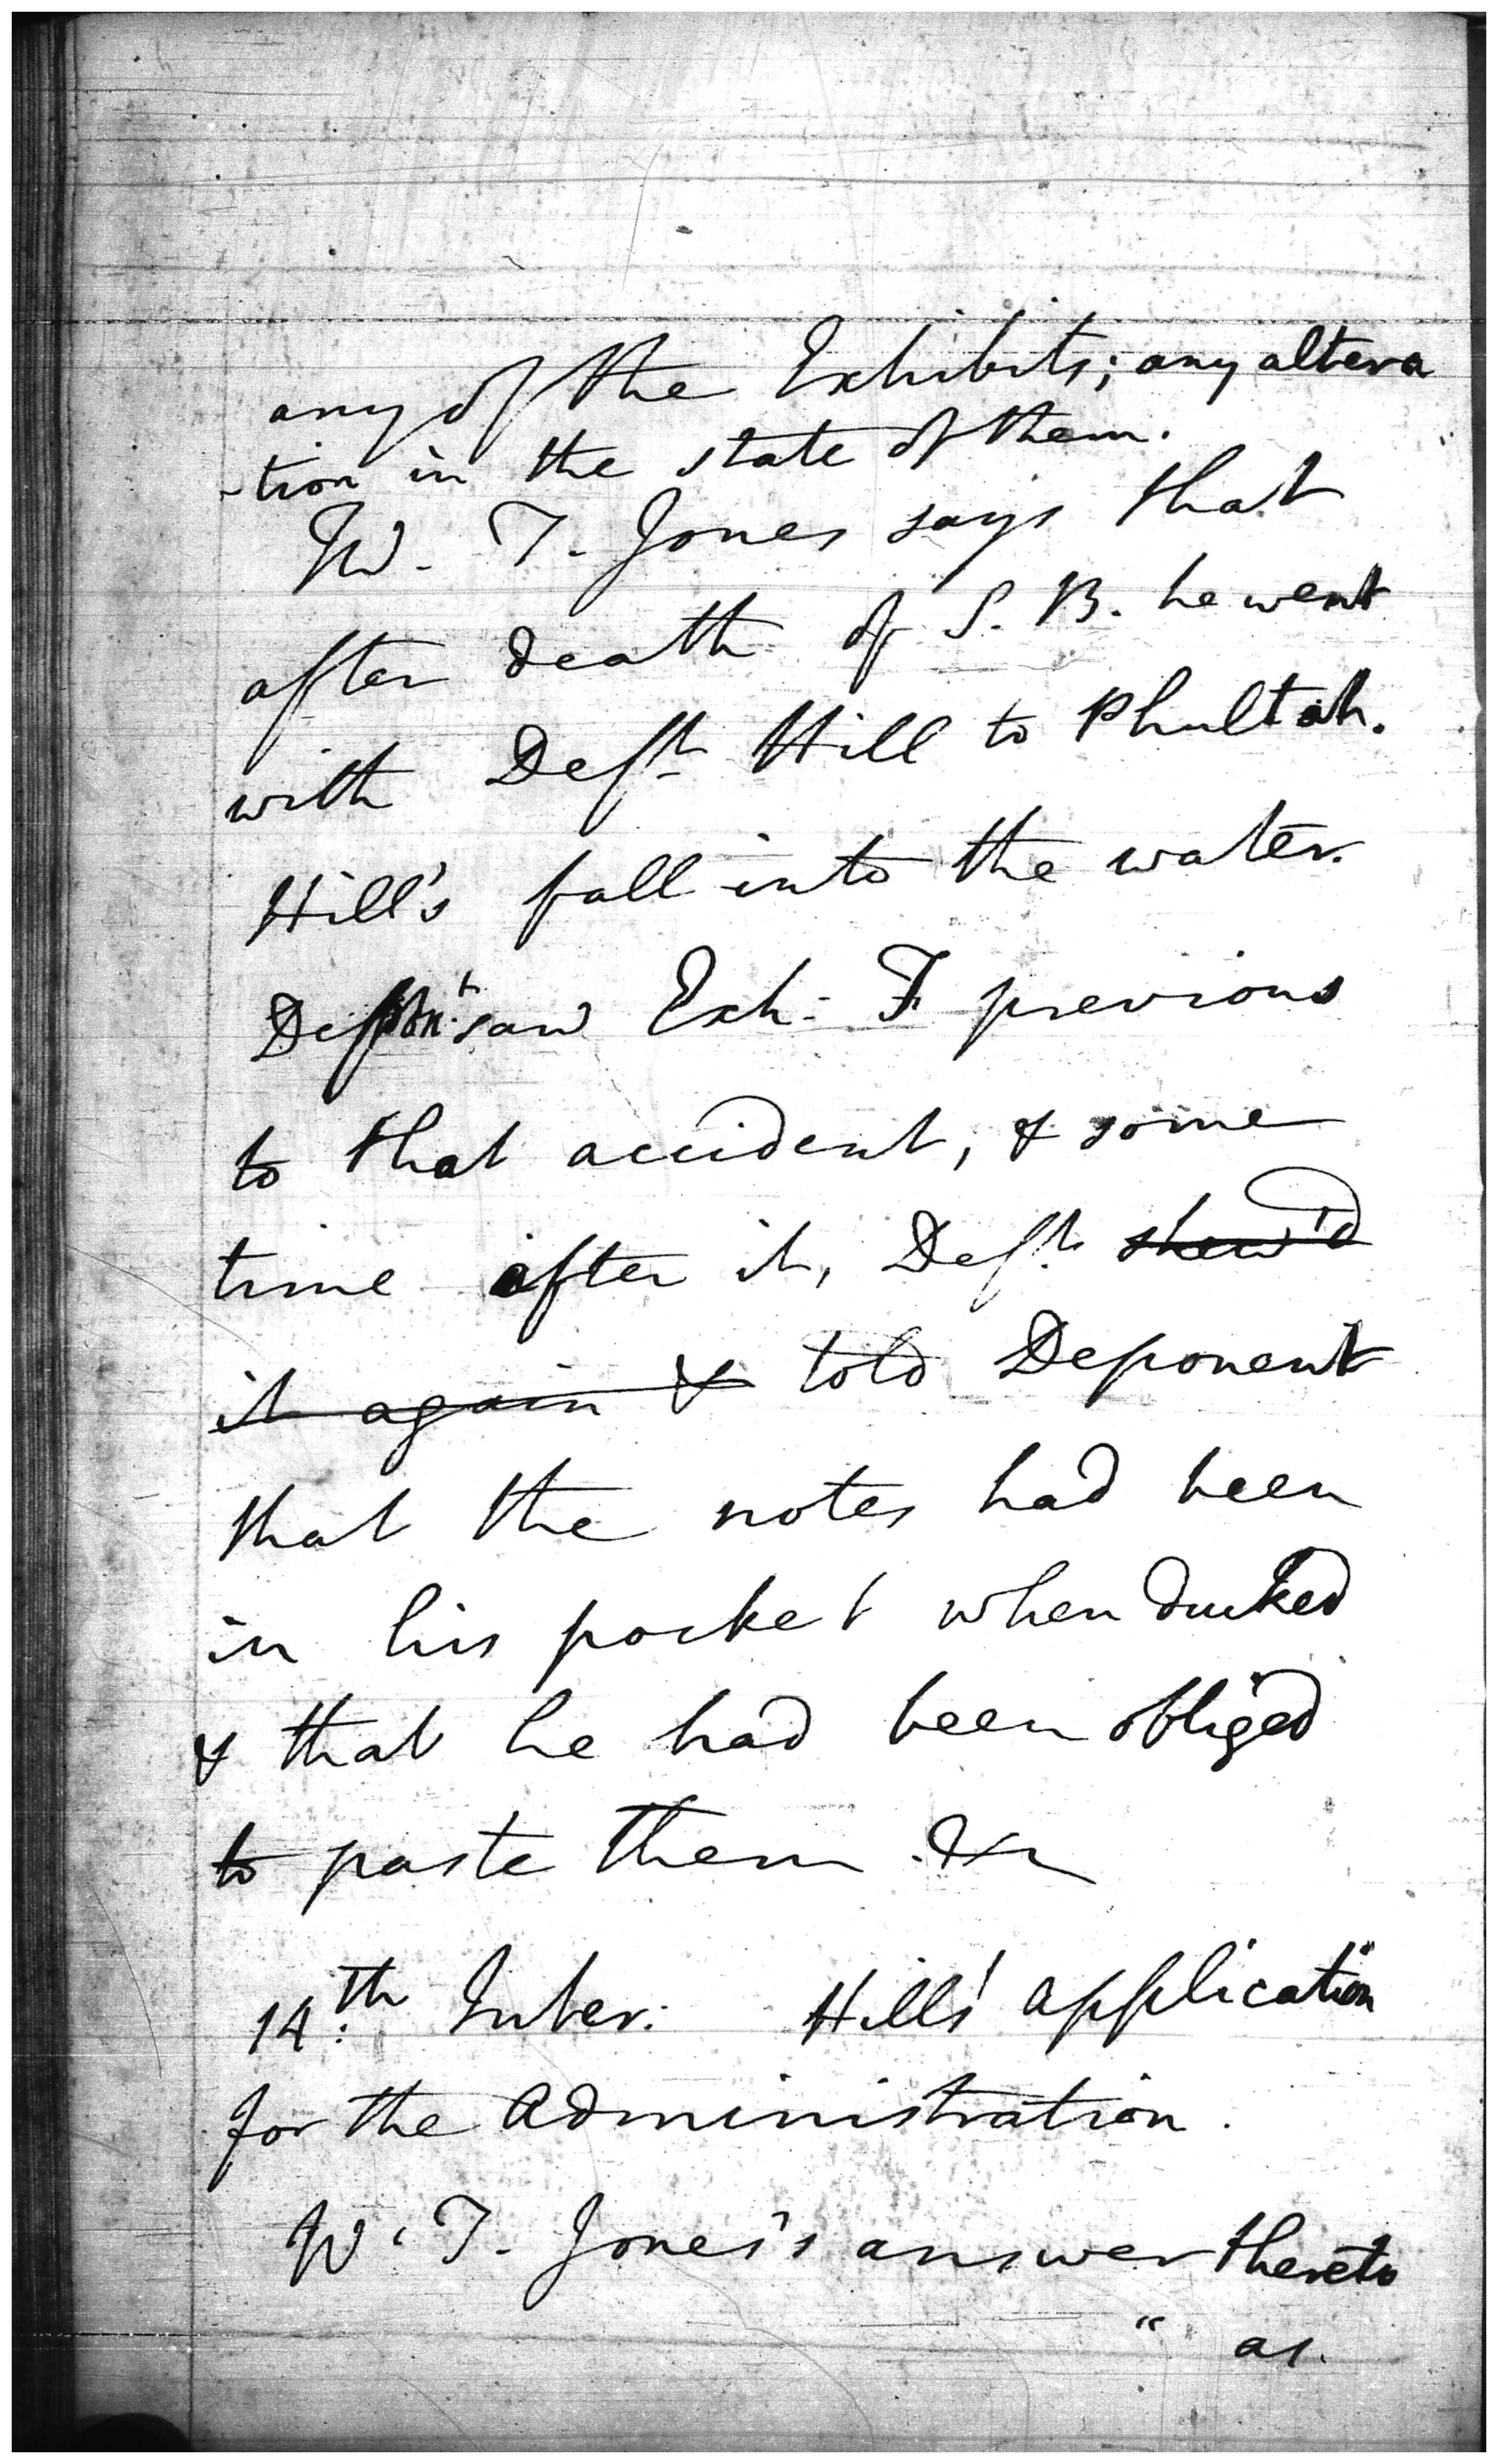 any of the Exhibits; any altera
-tion in the state of them.
W. T. Jones says that
after death of S. B. he went
with Deft. Hill to Phultah.
Hill's fall into the water.
Depon.t saw Exh: F previous
to that accident, & some
time after it, Deft. shew'd
it again & told Deponent
that the notes had been
in his pocket when ducked
& that he had been obliged
to paste them &c
14.th Inter: Hill's application
for the Administration.
W. T. Jones's answer thereto
" as.